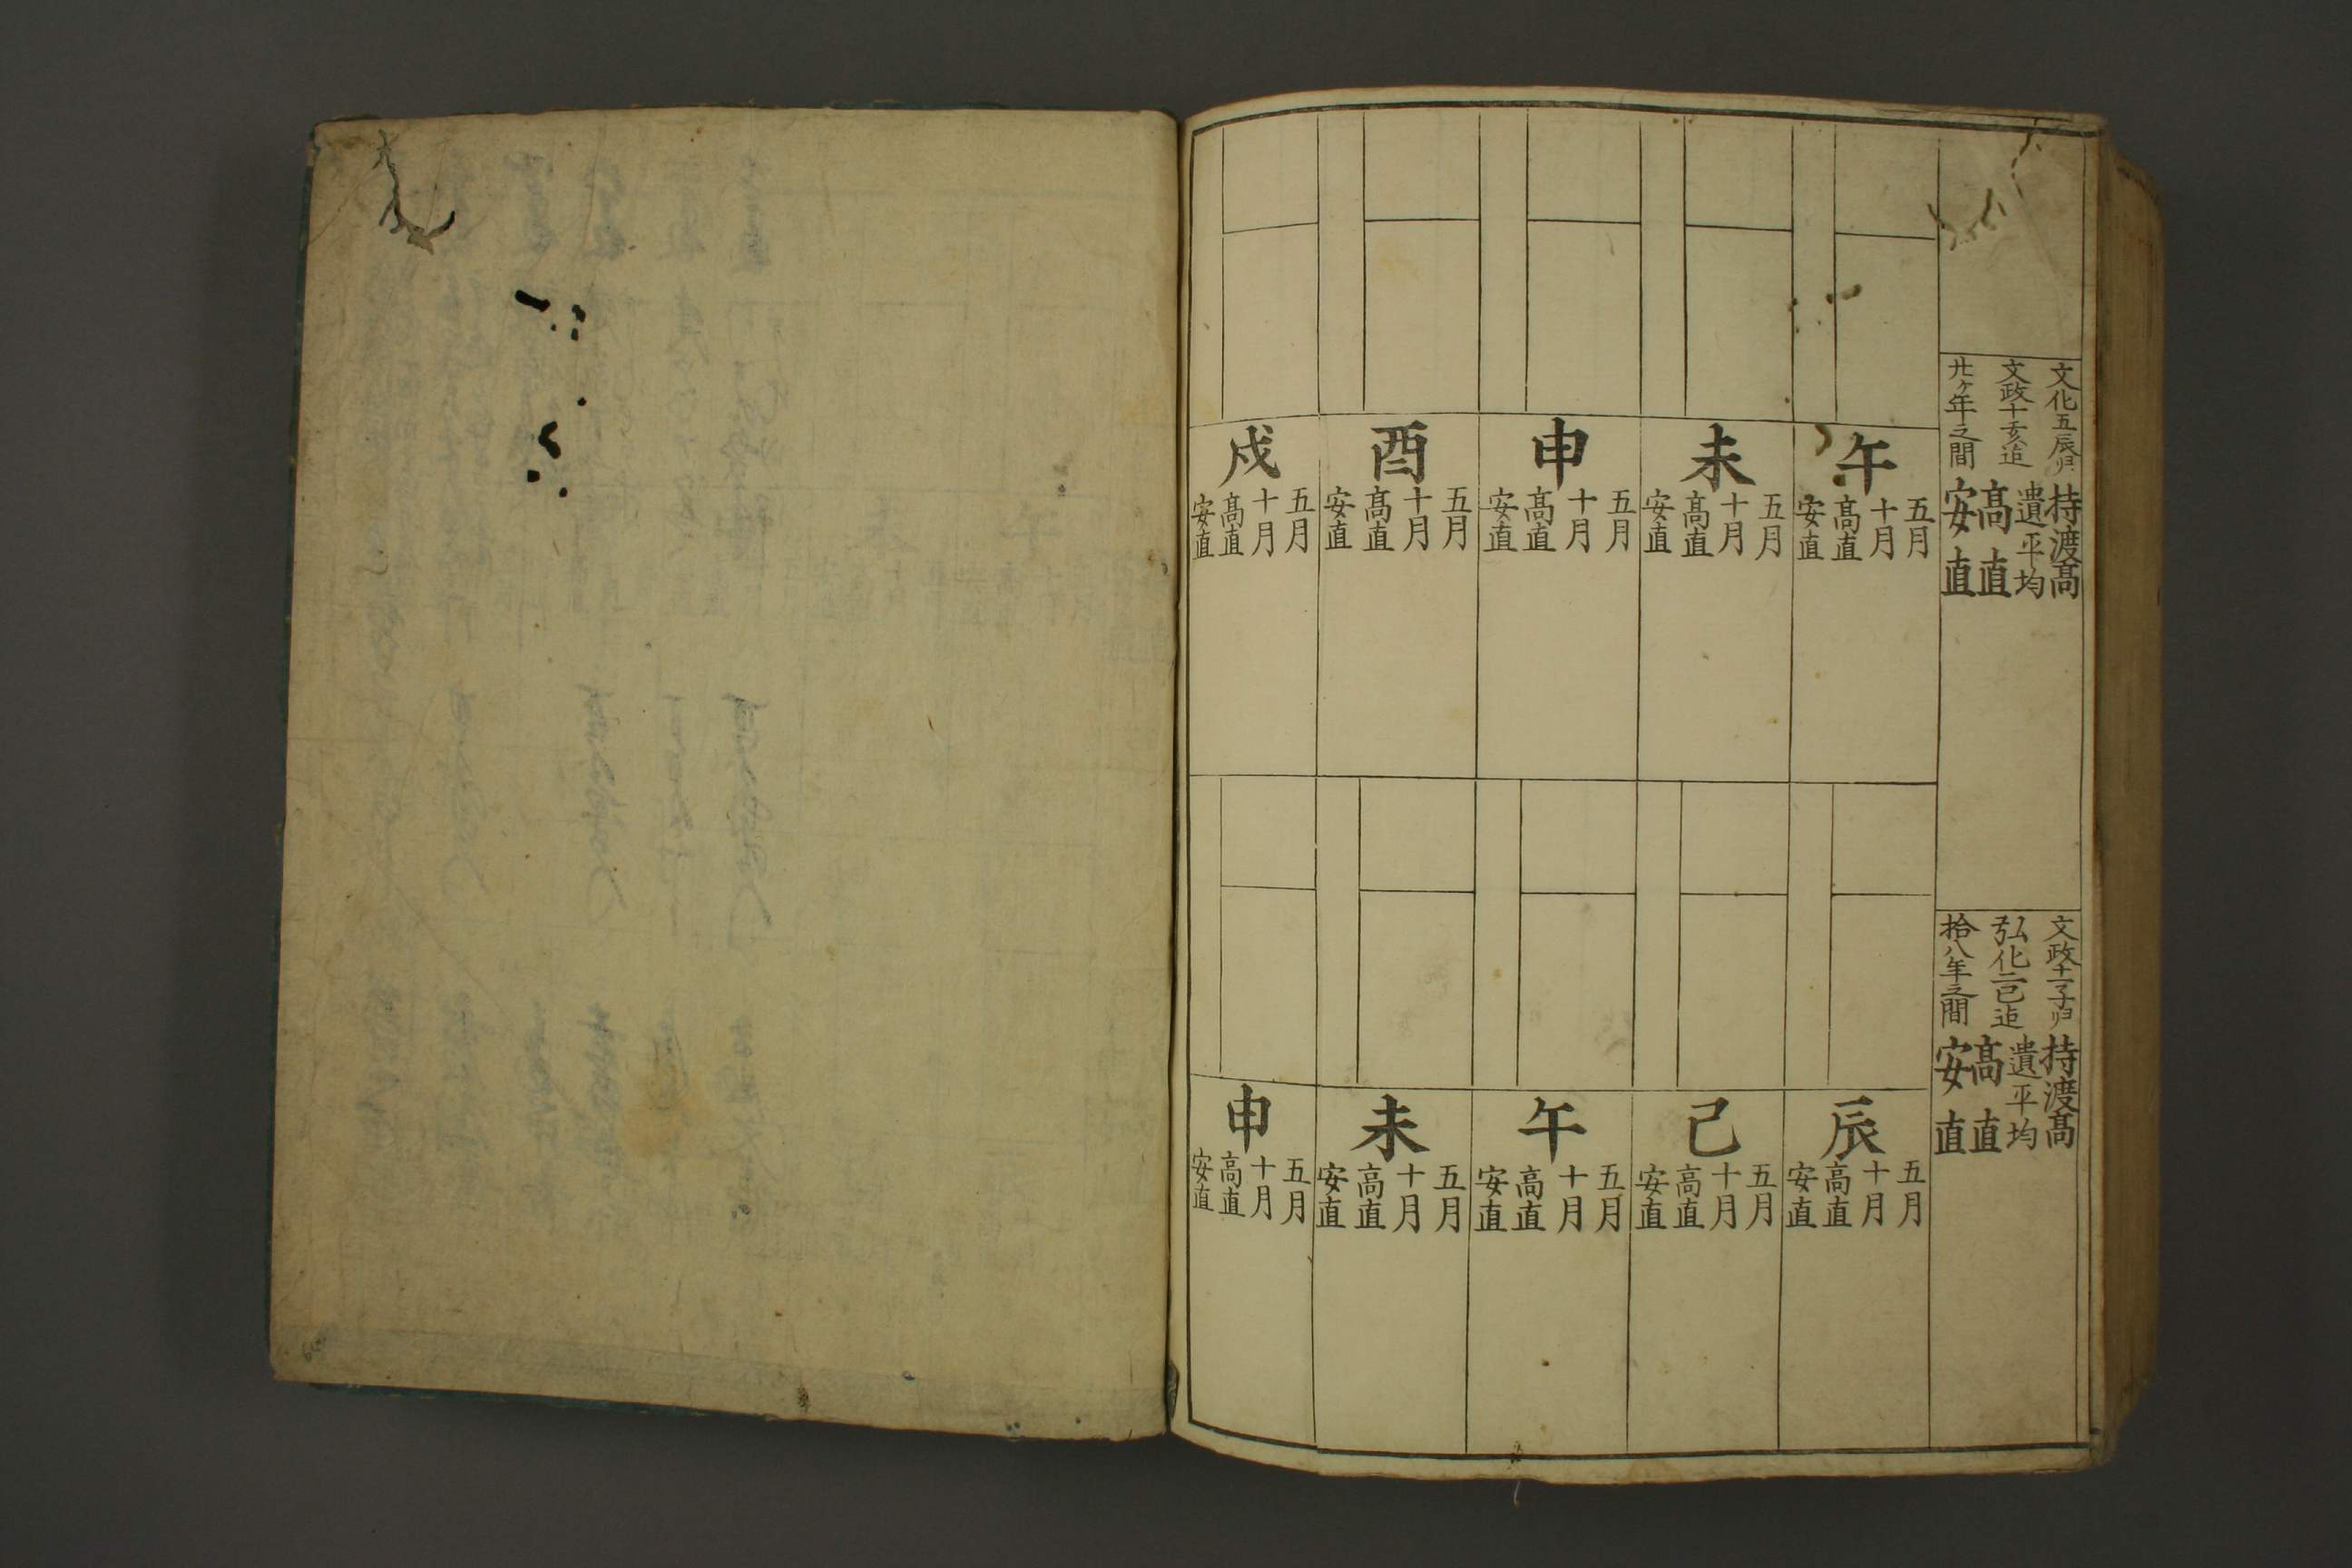 文化五辰ゟ
文政十亥迄
廿ヶ年之間
持渡髙
遺平均
髙直
安直
午
五月
十月
髙直
安直
未
五月
十月
髙直
安直
申
五月
十月
髙直
安直
酉
五月
十月
髙直
安直
戌
五月
十月
髙直
安直
文政十一子ゟ
弘化二巳迄
拾八年之間
持渡髙
遺平均
髙直
安直
辰
五月
十月
髙直
安直
己
五月
十月
髙直
安直
午
五月
十月
髙直
安直
未
五月
十月
髙直
安直
申
五月
十月
髙直
安直